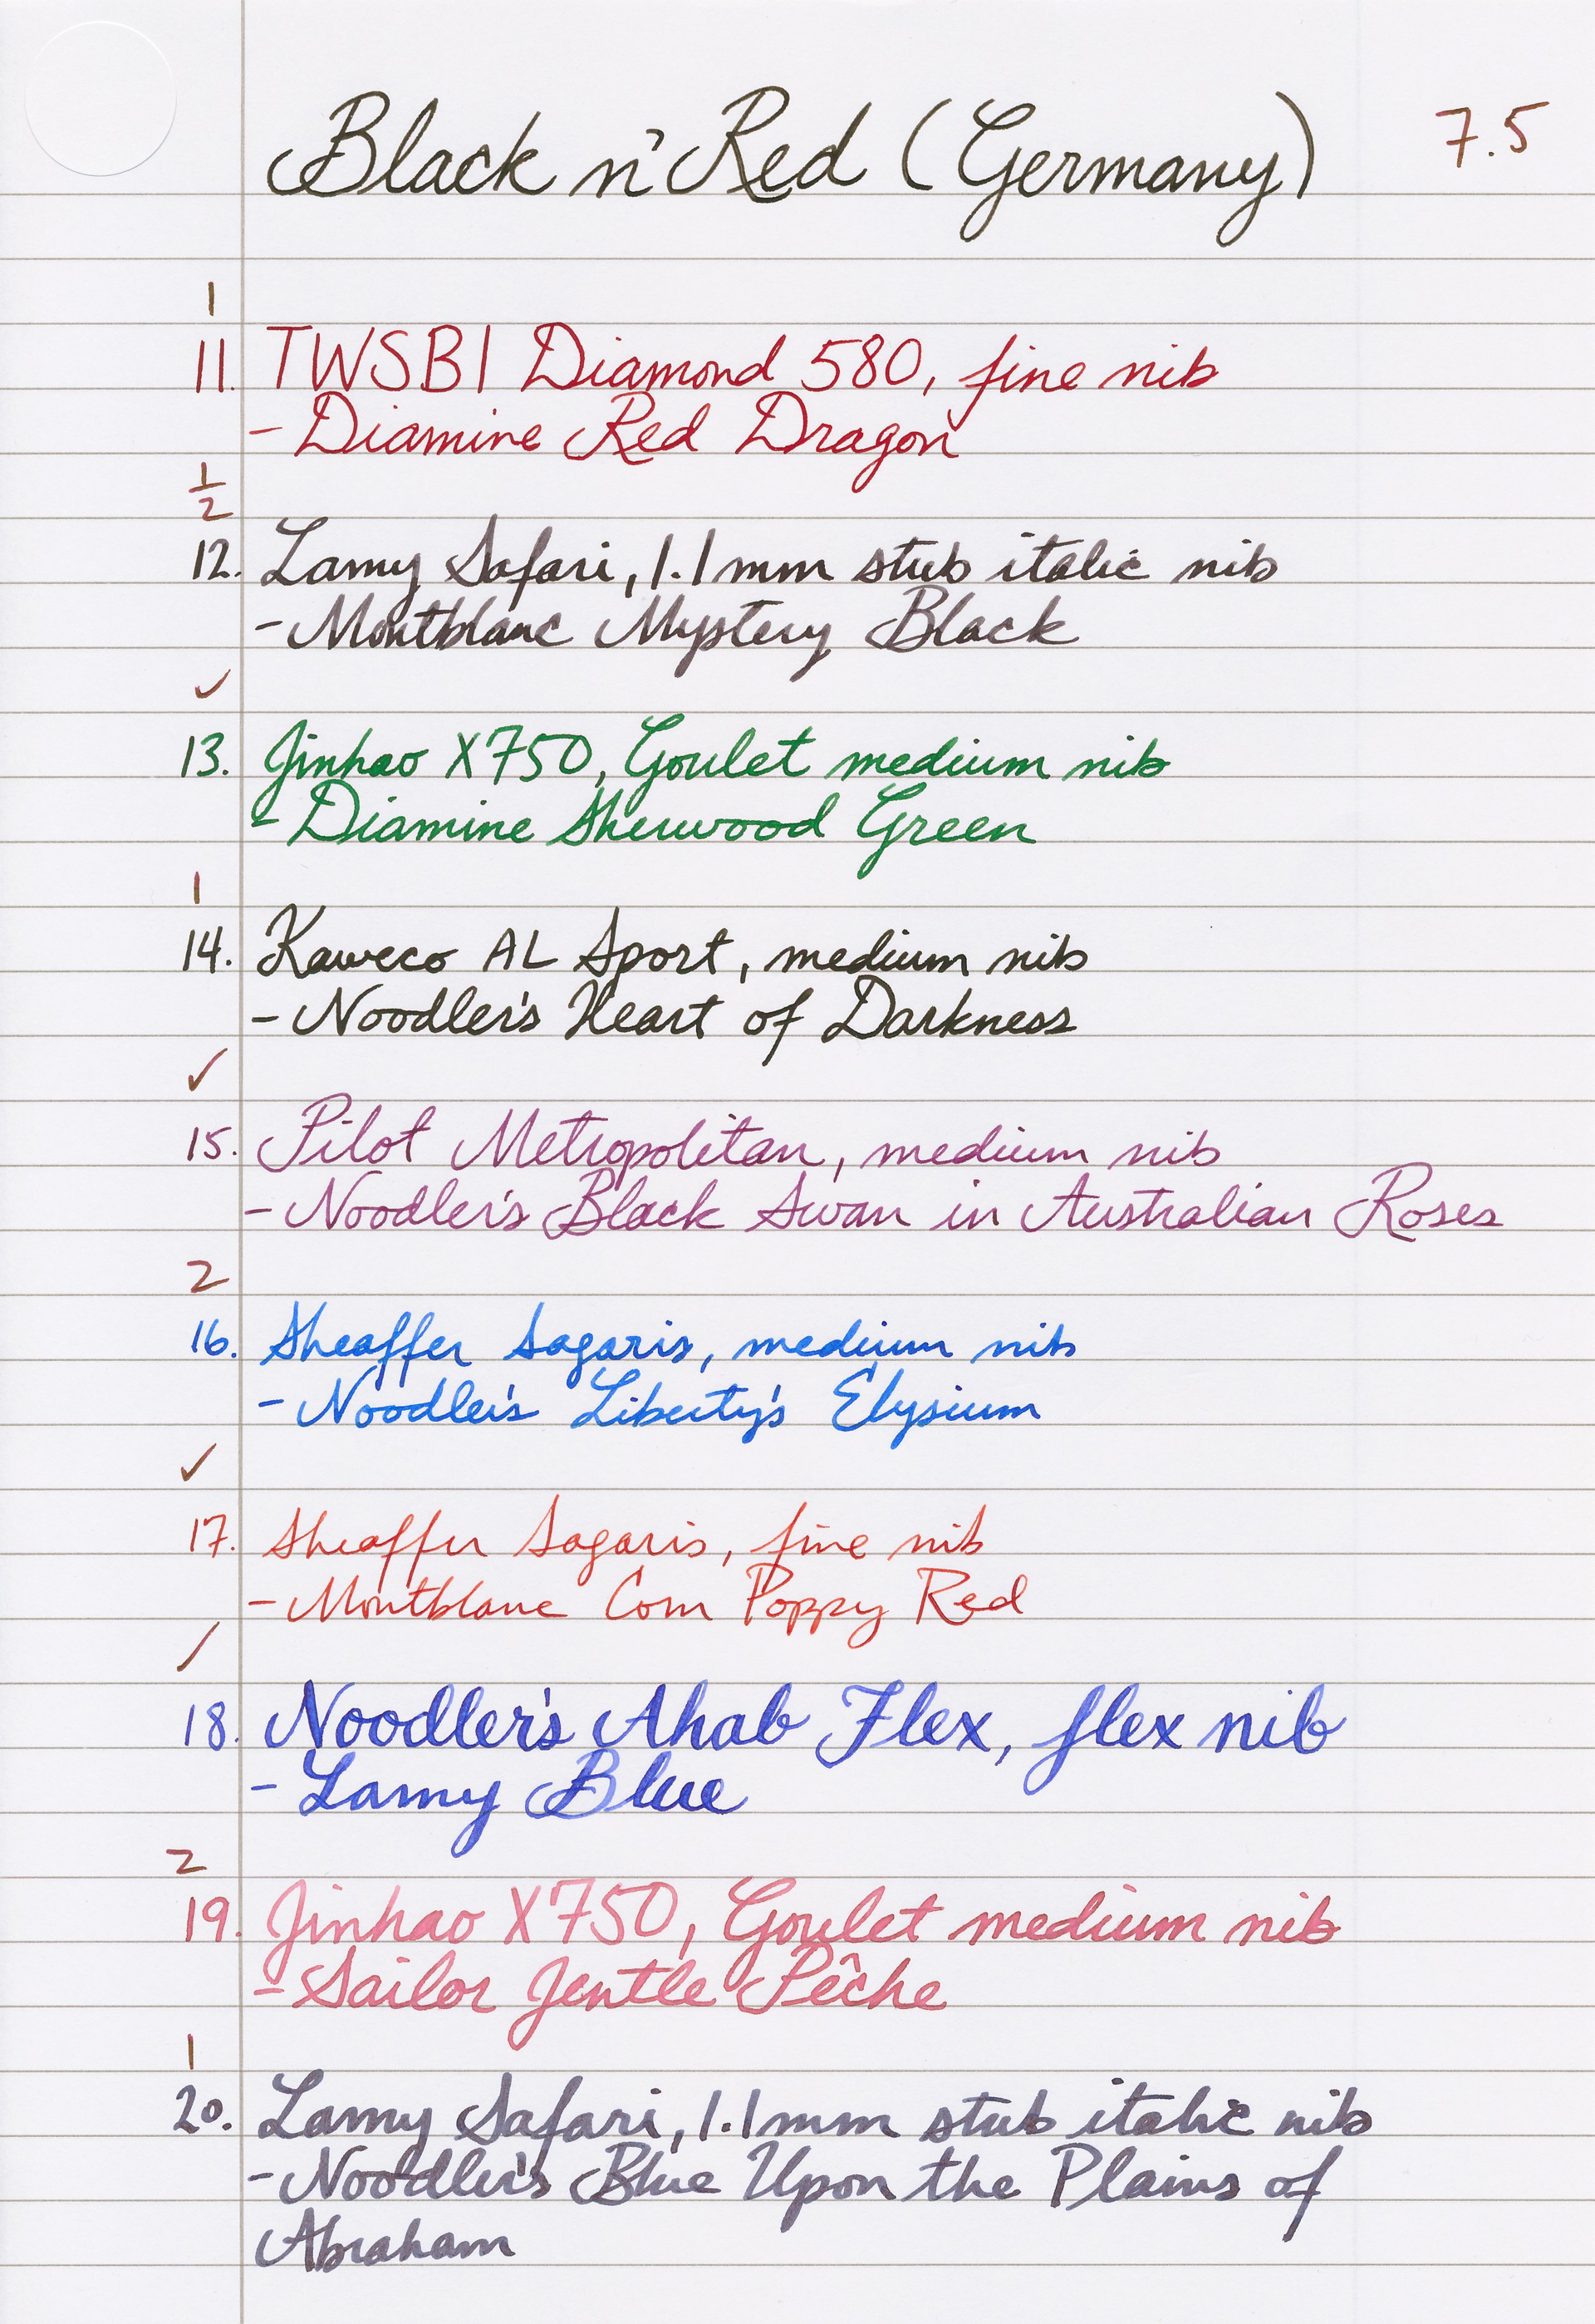 Black n' Red (Germany) 7.5
1
11. TWSBI Diamond 580, fine nib
- Diamine Red Dragon
1/2
12. Lamy Safari, 1.1mm stub italic nib
- Montblanc Mystery Black
✓
13. Jinhao X750, Goulet medium nib
- Diamine Sherwood Green
1
14. Kaweco AL Sport, medium nib
- Noodler's Heart of Darkness
✓
15. Pilot Metropolitan, medium nib
- Noodler's Black Swan in Australian Roses
2
16. Sheaffer Sagaris, medium nib
- Noodler's Liberty's Elysium
✓
17. Sheaffer Sagaris, fine nib
- Montblanc Corn Poppy Red
/
18. Noodler's Ahab Flex, flex nib
- Lamy Blue
2
19. Jinhao X750, Goulet medium nib
- Sailor Jentle Pêche
1
20. Lamy Safari, 1.1mm stub italic nib
- Noodler's Blue Upon the Plains of
Abraham